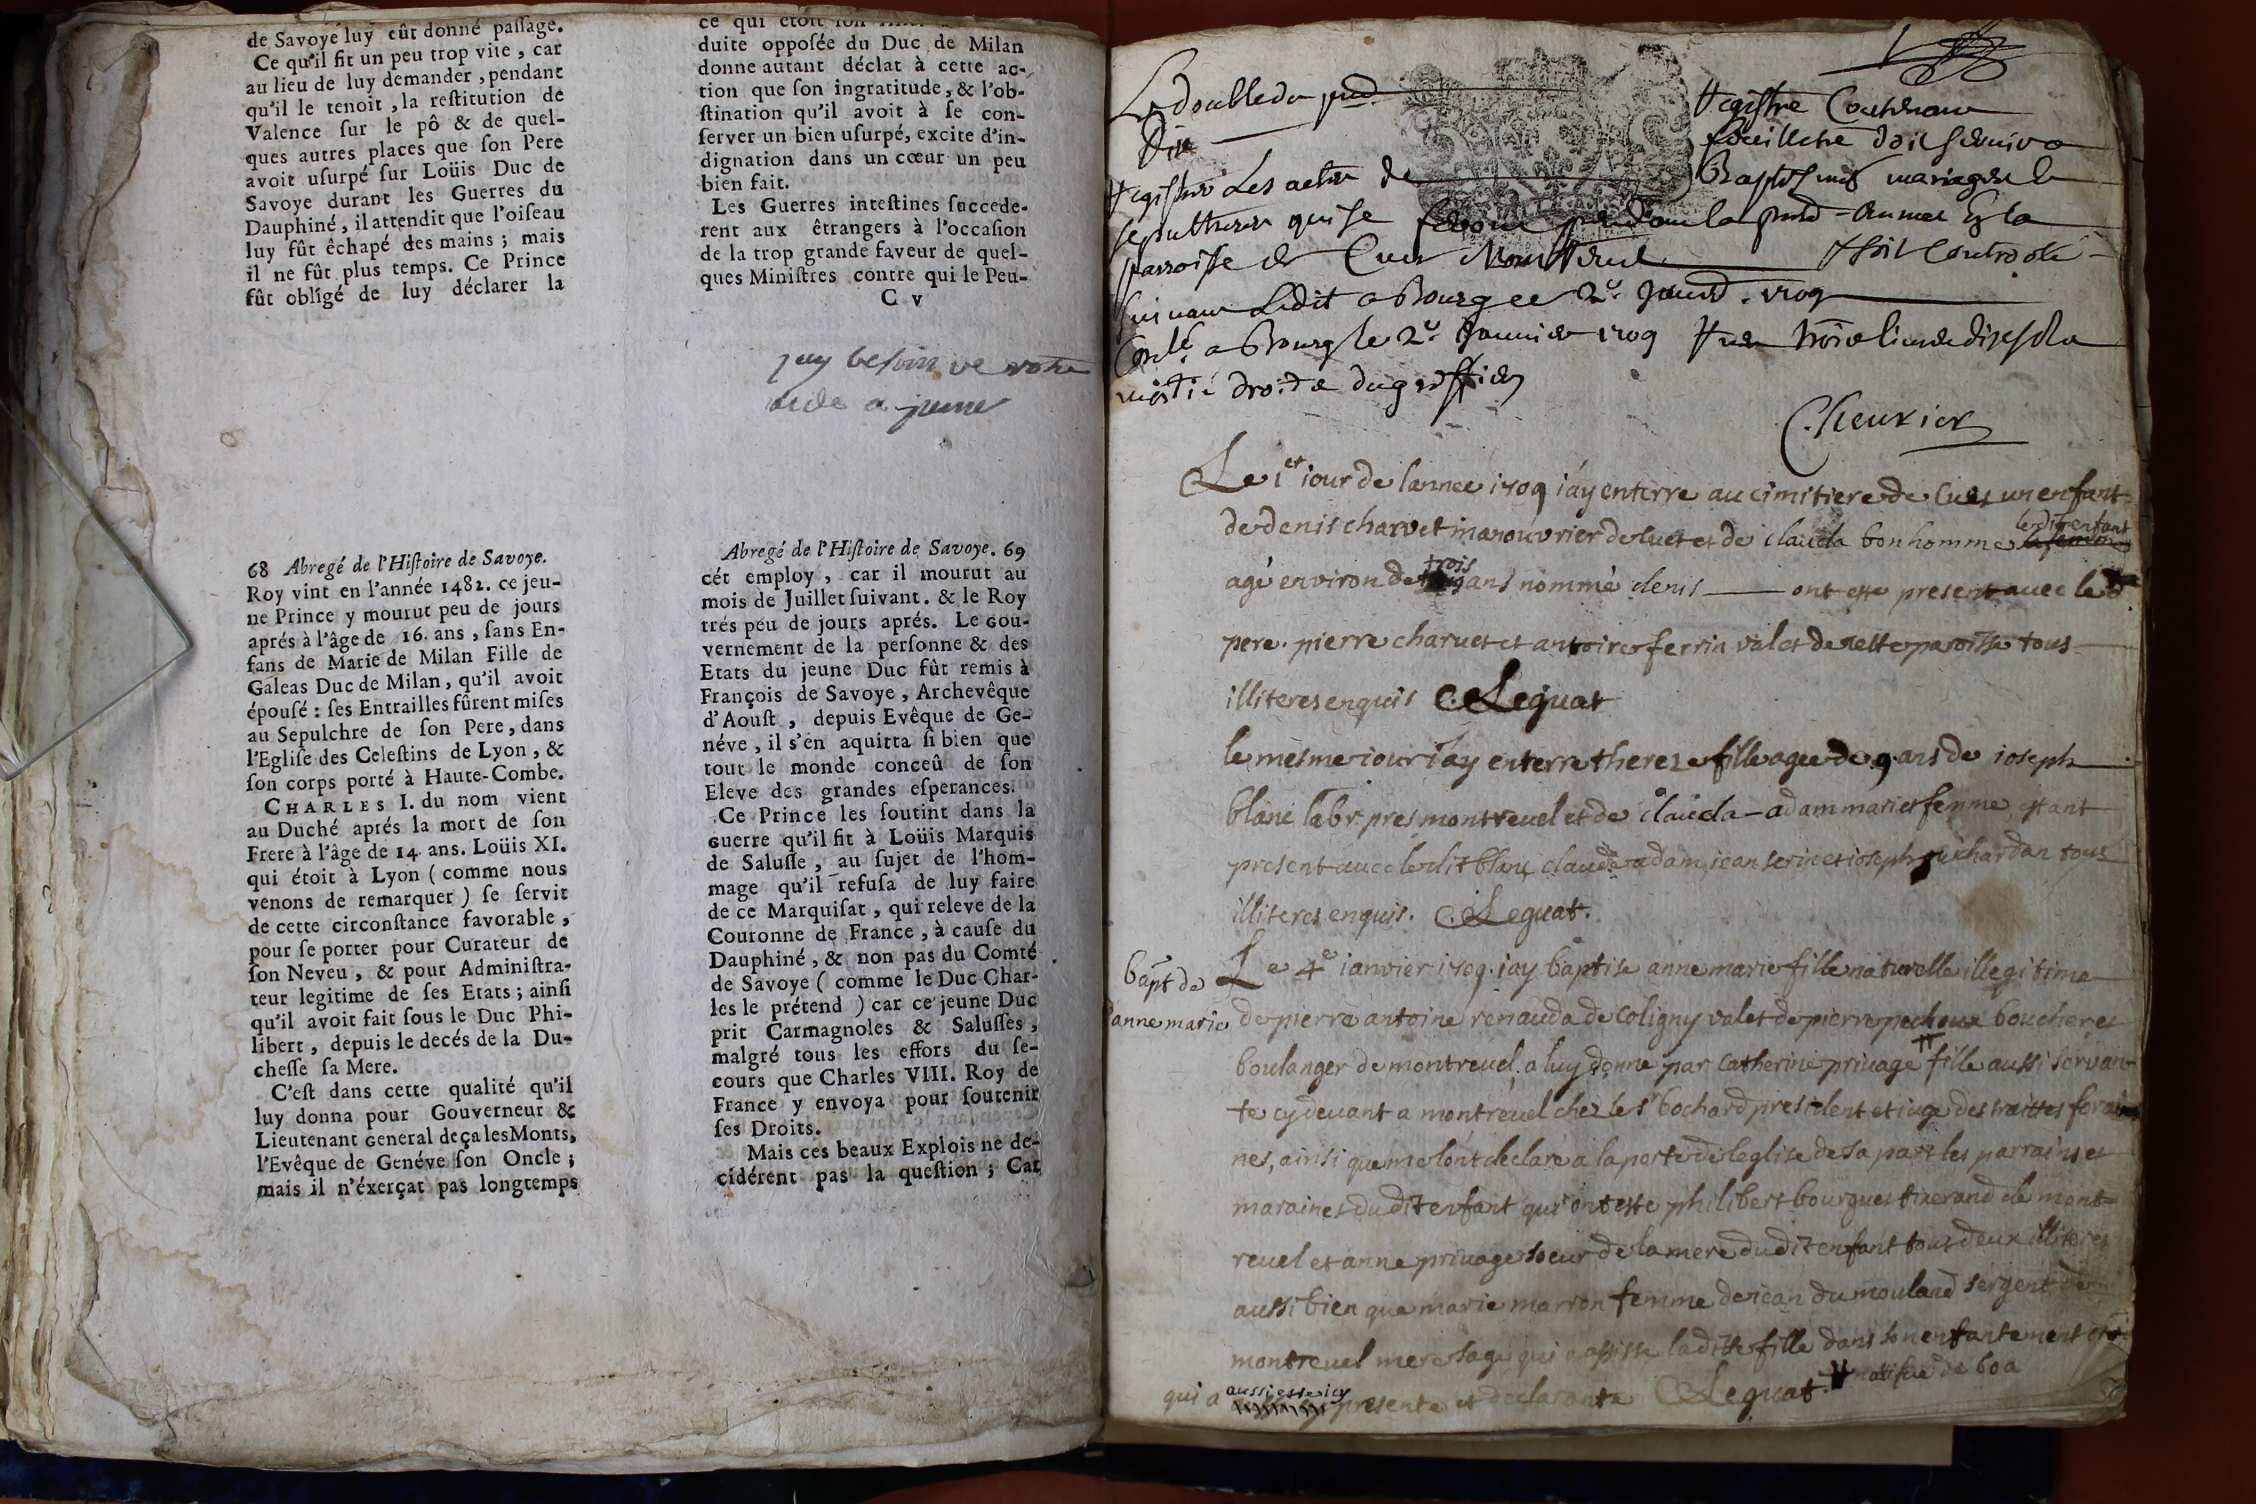 de Savoye luy eût donné paſſage.
Ce qu'il fit un peu trop vite, car
au lieu de luy demander, pendant
qu'il le tenoit, la reſtitution de
Valence ſur le pô & de quel-
ques autres places que ſon Pere
avoit uſurpé ſur Loüis Duc de
Savoye durant les Guerres du
Dauphiné, il attendit que l'oiſeau
luy fût êchapé des mains; mais
il ne fût plus temps. Ce Prince
fût obligé de luy déclarer la
ce qui étoit ſon
duite oppoſée du Duc de Milan
donne autant déclat à cette ac-
tion que ſon ingratitude, & l'ob-
ſtination qu'il avoit à ſe con-
ſerver un bien uſurpé, excite d'in-
dignation dans un cœur un peu
bien fait.
Les Guerres inteſtines ſuccede-
rent aux êtrangers à l'occaſion
de la trop grande faveur de quel-
ques Miniſtres contre qui le Peu-
C v
jay besoin de votre
aide a
68 Abregé de l'Hiſtoire de Savoye.
Roy vint en l'année 1482. ce jeu-
ne Prince y mourut peu de jours
aprés à l'âge de 16. ans, ſans En-
fans de Marie de Milan Fille de
Galeas Duc de Milan, qu'il avoit
épouſé: ſes Entrailles fûrent miſes
au Sepulchre de ſon Pere, dans
l'Egliſe des Celeſtins de Lyon, &
ſon corps porté à Haute-Combe.
CHARLES I. du nom vient
au Duché aprés la mort de ſon
Frere à l'âge de 14 ans. Loüis XI.
qui étoit à Lyon (comme nous
venons de remarquer) ſe ſervit
de cette circonſtance favorable,
pour ſe porter pour Curateur de
ſon Neveu, & pour Adminiſtra-
teur legitime de ſes Etats; ainſi
qu'il avoit fait ſous le Duc Phi-
libert, depuis le decés de la Du-
cheſſe ſa Mere.
C'eſt dans cette qualité qu'il
luy donna pour Gouverneur &
Lieutenant General deça les Monts,
l'Evêque de Genéve ſon Oncle;
mais il n'éxerçat pas longtemps
Abregé de l'Hiſtoire de Savoye. 69
cét employ, car il mourut au
mois de Juillet ſuivant. & le Roy
trés peu de jours aprés. Le Gou-
vernement de la perſonne & des
Etats du jeune Duc fût remis à
François de Savoye, Archevêque
d'Aouſt, depuis Evêque de Ge-
néve, il s'en aquitta ſi bien que
tout le monde conceû de ſon
Eleve des grandes eſperances.
Ce Prince les ſoutint dans la
Guerre qu'il fit à Loüis Marquis
de Saluſſe, au ſujet de l'hom-
mage qu'il refuſa de luy faire
de ce Marquiſat, qui releve de la
Couronne de France, à cauſe du
Dauphiné, & non pas du Comté
de Savoye (comme le Duc Char-
les le prétend) car ce jeune Duc
prit Carmagnoles & Saluſſes,
malgré tous les effors du ſe-
cours que Charles VIII. Roy de
France y envoya pour ſoutenir
ſes Droits.
Mais ces beaux Explois ne de-
cidérent pas la queſtion; Car
Le double du registre Contenant
Dix fouilletz doit servir a
registrer les actes de Baptesmes mariages et
sepultures qui se feront pendant la année En la
parroisse de Cuet Montreuel controolé
suivant Ledit a Bourg ce 2e. 1709
a Bourg le 2e Janvier 1709
moitié droits du greffier
Cheurier
Le 1er iour de lannee 1709 i'ay enterre au cimitiere de Cuet un enfant
de denis charvet manouvrier de Cuet et de clauda bonhomme ledit enfant
agé environ de trois ans nommé denis ont este present avec led
pere. pierre charvet et antoine ferrin valet de cette paroisse tous
illiteres enquis C. Leguat
le mesme iour i'ay enterre thereze fille agee de 9 ans de ioseph
blanc labr pres montreuel et de clauda adam mari et femme, estant
present avec ledit blanc claude adam, iean et ioseph tous
illiteres enquis. C. Leguat.
bapt de
anne marie
Le 4e ianvier 1709. i'ay baptise anne marie fille naturelle illegitime
de pierre antoine renauda de Coligny valet de pierre pechoux boucher et
boulanger de montreuel, a luy donne par Catherine privage fille aussi servan-
te cy devant a montreuel chez le sr bochard president et iuge des traittes forai-
nes, ainsi que me l'ont declaré a la porte de leglise de sa part les parrains et
maraines dudit enfant qui ont este philibert bourguet tixerand de mont-
reuel et anne privage soeur de la mere dudit enfant tous deux illiteres
aussi bien que marie marron femme de iean du moulard sergent de
montreuel mere sage qui a assiste la ditte fille dans son enfantement et
qui a aussi este icy presente et declarante C. Leguat. native de boa